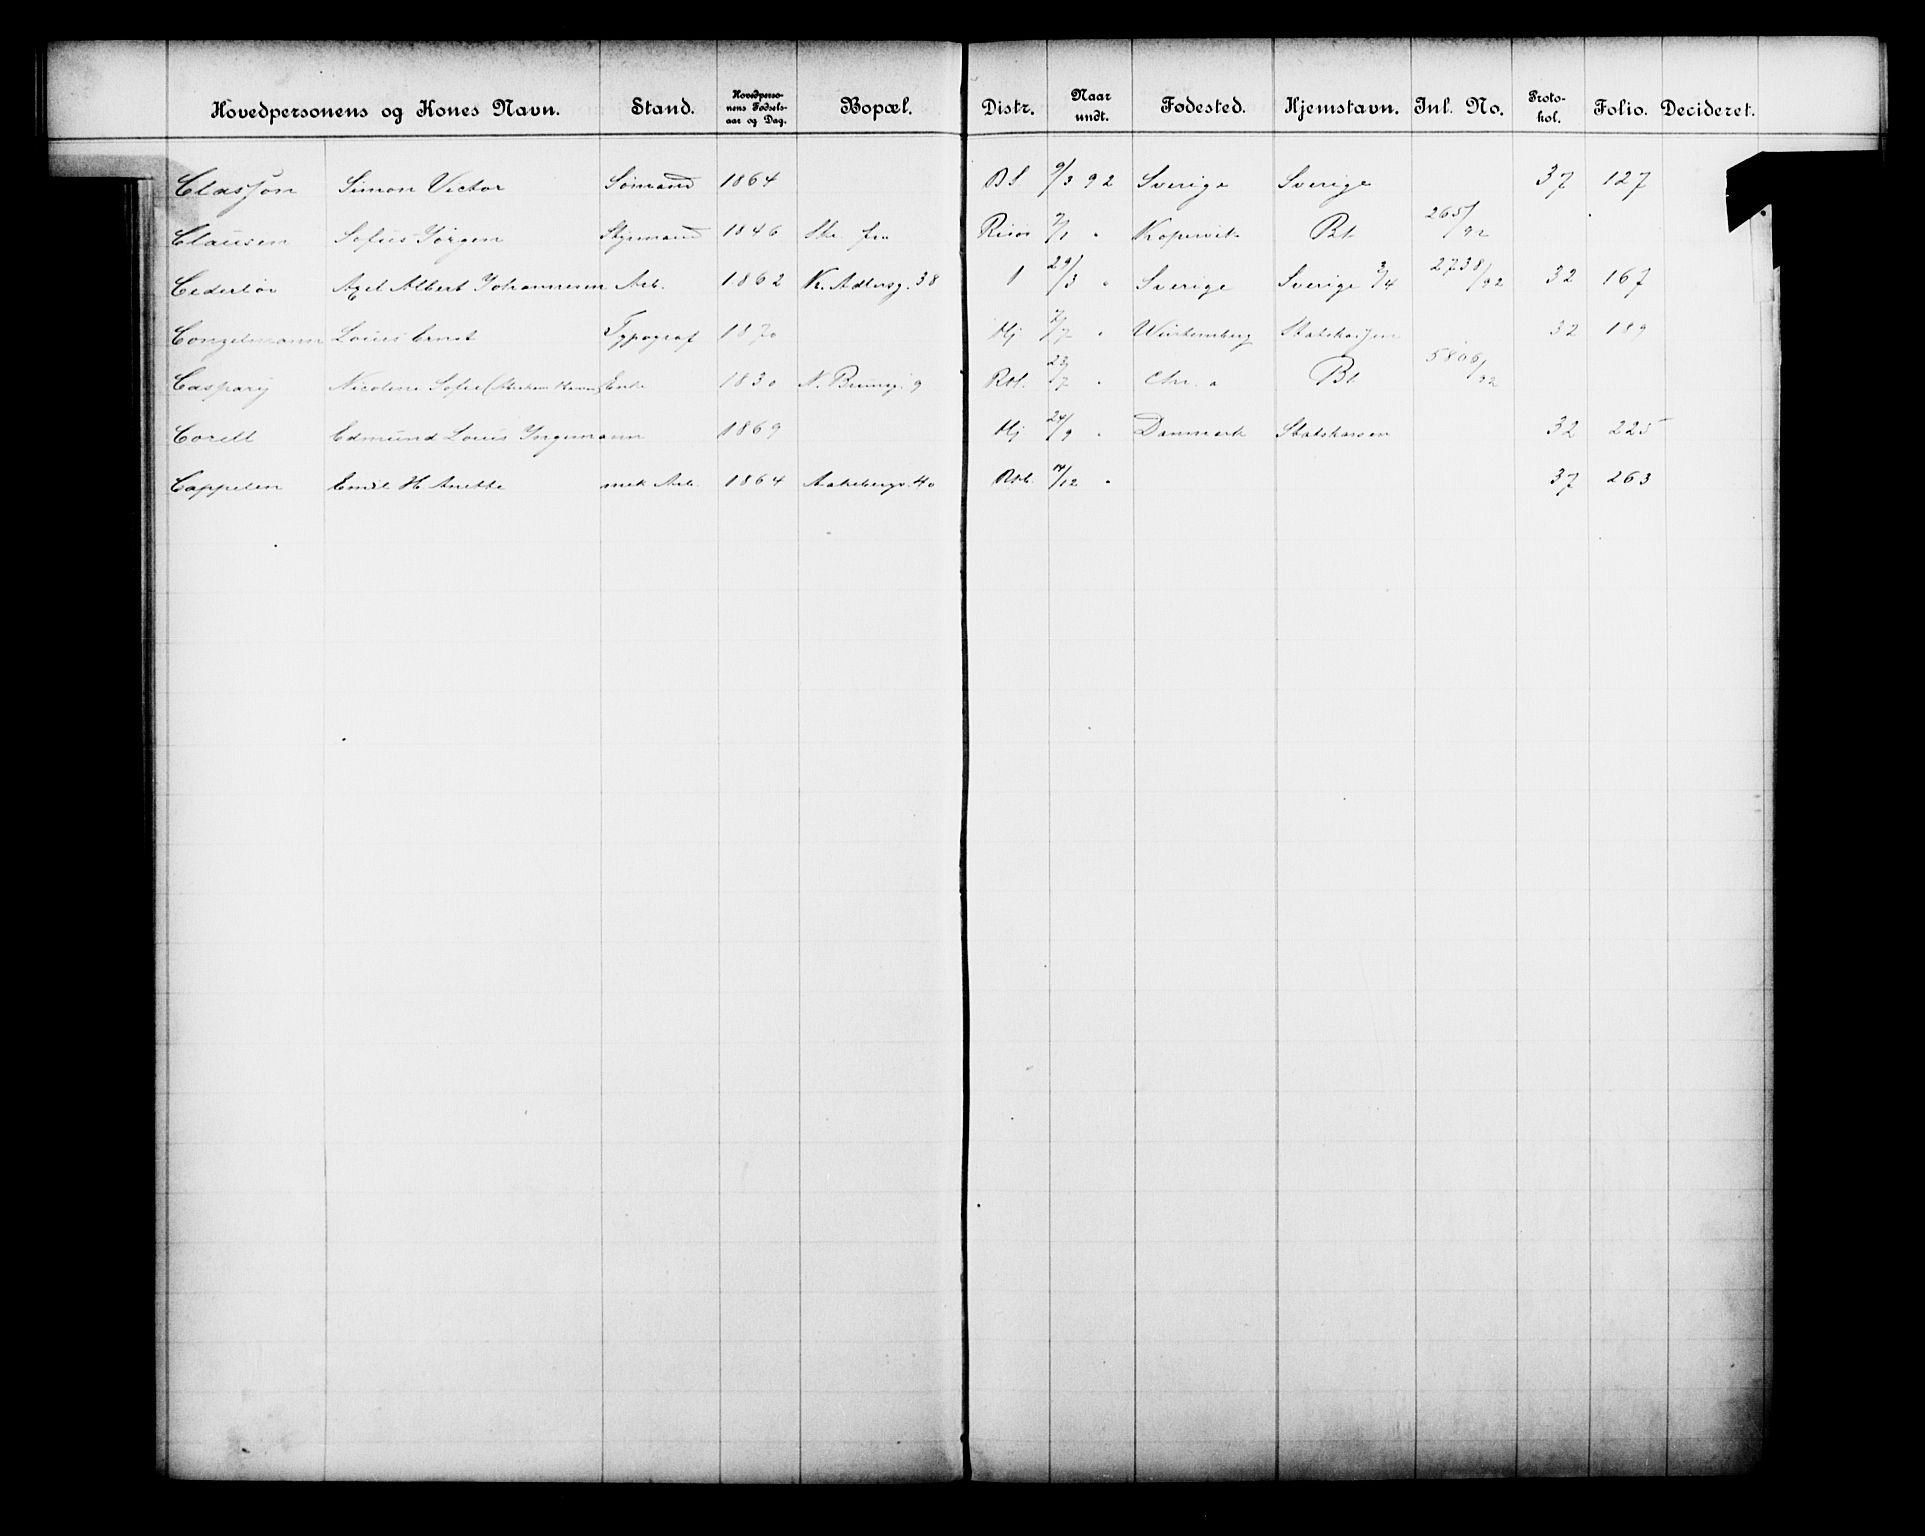 Hovedpersonens og Kones Navn. Stand. Hovedpersonens Fødselsaar og Dag. Bopæl. Distr. Naar undt. Fødested. Hjemstavn. Inl. No. Protokol. Folio. Decideret.
Classon Simon Victor Sømand 1864 9/3 92 Sverige Sverige 37 127
Clausen Sofus Jørgen Styrmand 1846 Risør 7/1 " Kopervik Bt. 265/92
Axel Albert Johannesen Arb. 1862 N. Adlersg. 38 1 29/3 " Sverige Sverige 3/4 2738/92 32 167
Conzelmann Louis Ernst Typograf 1870 Hj 7/7 " Würtemberg Statskassen 32 189
Caspary Nicoline Sofie Enke 1830 9 23/7 " Chr.a Bt. 5806/92
Corell Edmund Louis Ingemann 1869 Hj 24/9 " Danmark Statskassen 32 225
Cappelen Emil H. Anette mek Arb. 1864 Aakebergv. 40 14/12 " 37 263